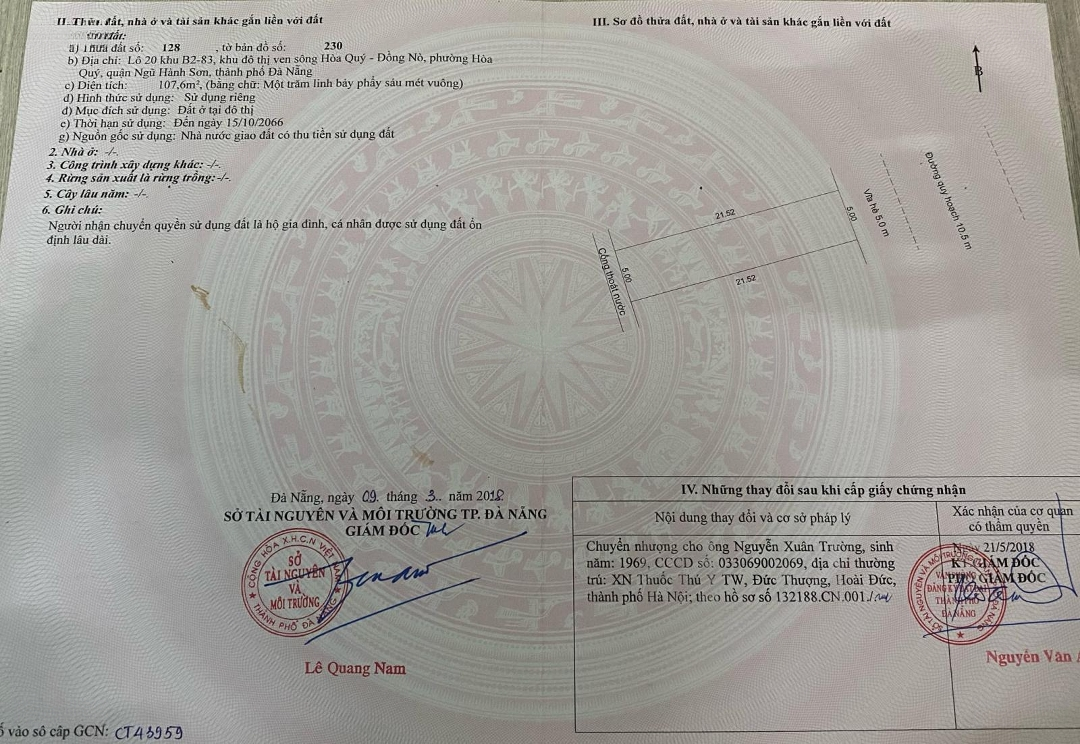 II. Thửa đất, nhà ở và tài sản khác gắn liền với đất
a) Thửa đất số: 128 , tờ bản đồ số: 230
b) Địa chỉ: Lô 20 khu B2-83, khu đô thị ven sông Hòa Quý - Đồng Nò, phường Hòa
Quý, quận Ngũ Hành Sơn, thành phố Đà Nẵng
c) Diện tích: 107,6m², (bằng chữ: Một trăm linh bảy phẩy sáu mét vuông)
d) Hình thức sử dụng: Sử dụng riêng
đ) Mục đích sử dụng: Đất ở tại đô thị
e) Thời hạn sử dụng: Đến ngày 15/10/2066
g) Nguồn gốc sử dụng: Nhà nước giao đất có thu tiền sử dụng đất
2. Nhà ở: -/-
3. Công trình xây dựng khác: -/-
4. Rừng sản xuất là rừng trồng: -/-
5. Cây lâu năm: -/-
6. Ghi chú:
Người nhận chuyển quyền sử dụng đất là hộ gia đình, cá nhân được sử dụng đất ổn
định lâu dài.
III. Sơ đồ thửa đất, nhà ở và tài sản khác gắn liền với đất
B
21.52
5.00
21.52
5.00
Cống thoát nước
Vỉa hè 5,0 m
Đường quy hoạch 10,5 m
Đà Nẵng, ngày 09. tháng 3.. năm 2018
SỞ TÀI NGUYÊN VÀ MÔI TRƯỜNG TP. ĐÀ NẴNG
GIÁM ĐỐC
CỘNG HÒA X.H.C.N VIỆT NAM
SỞ
TÀI NGUYÊN
VÀ
MÔI TRƯỜNG
THÀNH PHỐ ĐÀ NẴNG
Lê Quang Nam
IV. Những thay đổi sau khi cấp giấy chứng nhận
Nội dung thay đổi và cơ sở pháp lý
Xác nhận của cơ quan
có thẩm quyền
Chuyển nhượng cho ông Nguyễn Xuân Trường, sinh
năm: 1969, CCCD số: 033069002069, địa chỉ thường
trú: XN Thuốc Thú Y TW, Đức Thượng, Hoài Đức,
thành phố Hà Nội; theo hồ sơ số 132188.CN.001
Ngày 21/5/2018
KT.GIÁM ĐỐC
GIÁM ĐỐC
THÀNH PHỐ
ĐÀ NẴNG
Nguyễn Văn
vào sổ cấp GCN: CT43959